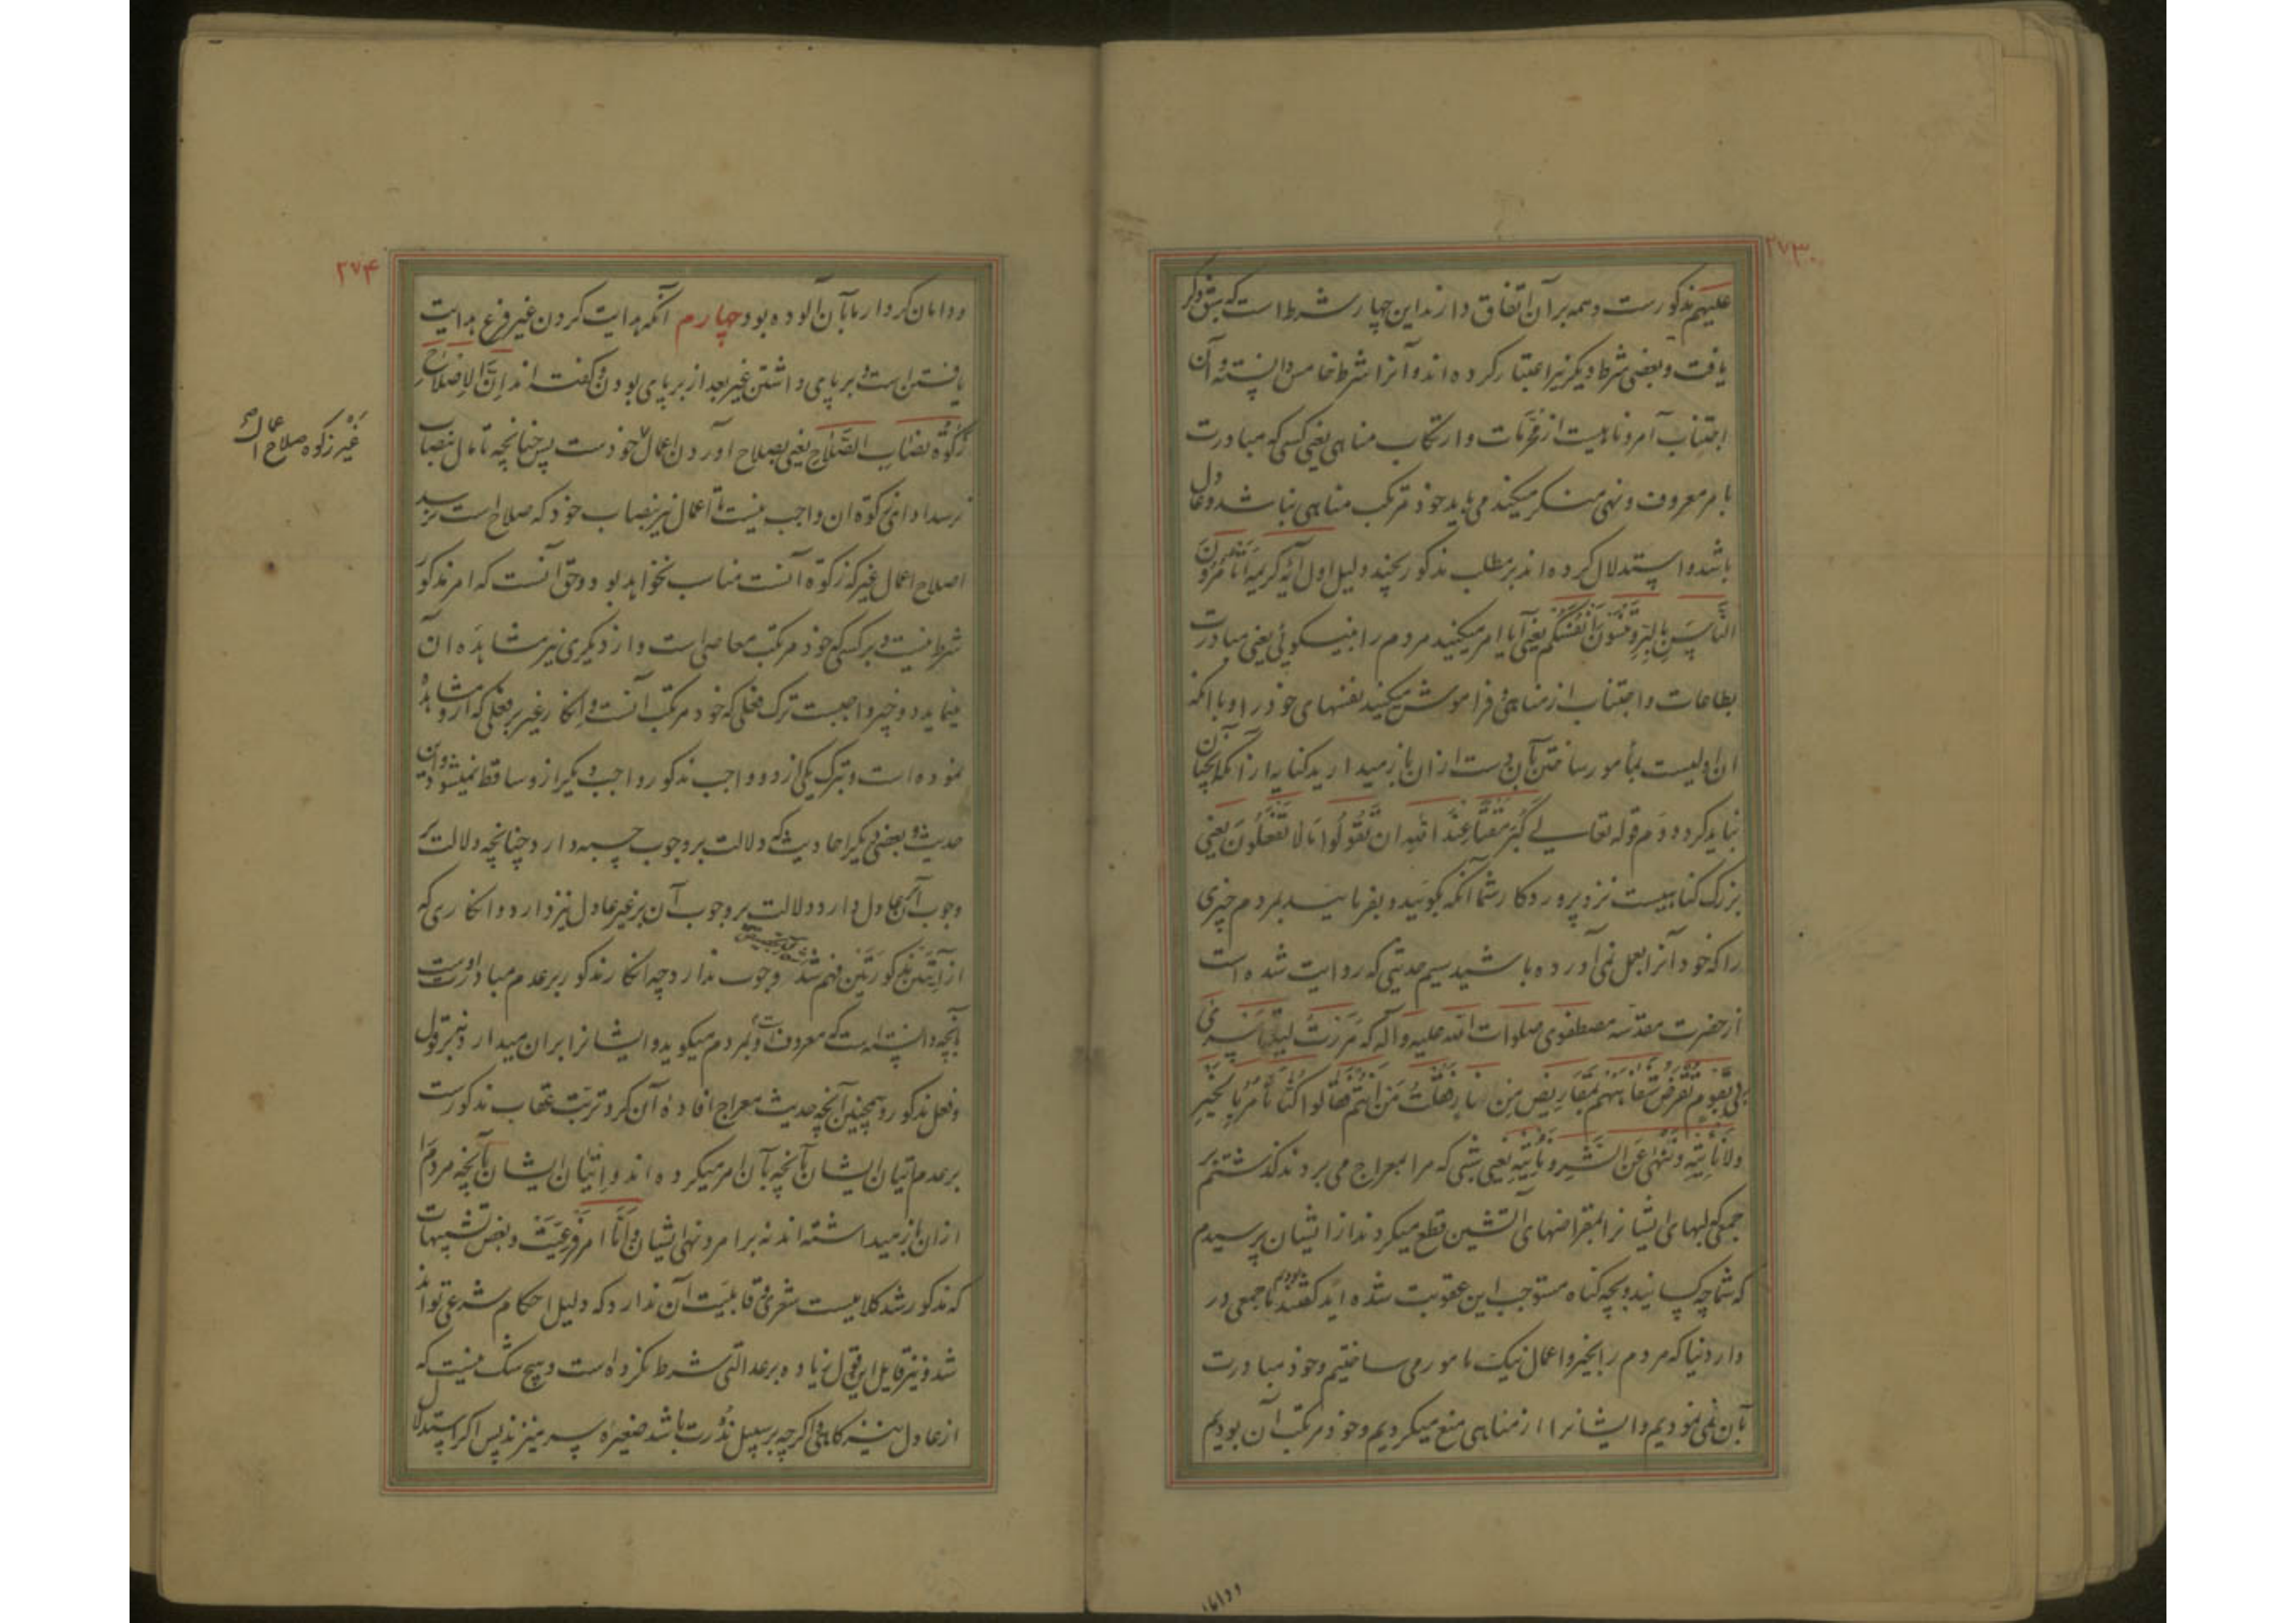 ۲۷۳
علیهم مذکورست و همه بر آن اتفاق دارند این چهار شرط است که سبق ذکر
یافت و بعضی شرط دیگر نیز اعتبار کرده اند و آنرا شرط خامس دانسته و آن
اجتناب آمر و ناهیست از محرمات و ارتکاب مناهی یعنی کسی که مبادرت
بامر معروف و نهی منکر میکند می باید خود مرتکب مناهی نباشد و عادل
باشد و استدلال کرده اند بر مطلب مذکور بچند دلیل اول آیه کریمه أتأمرون
الناس بالبر وتنسون أنفسکم یعنی آیا امر میکنید مردم را بنیکوئی یعنی مبادرت
بطاعات و اجتناب از مناهی و فراموش میکنید نفسهای خود را و با آنکه
آن اولیست بمأمور ساختن بآن دست از آن باز میدارید کنایه از آنکه آنچنان
نباید کرد دوم قوله تعالی کبر مقتا عند الله ان تقولوا ما لا تفعلون یعنی
بزرگ گناهیست نزد پروردگار شما آنکه بگوئید و بفرمائید بمردم چیزی
را که خود آنرا بعمل نمی آورده باشید سیم حدیثی که روایت شده است
از حضرت مقدسه مصطفوی صلوات الله علیه و آله که مررت لیلة اسری
بی بقوم تقرض شفاههم بمقاریض من نار فقلت من أنتم فقالوا کنا نأمر بالخیر
ولا نأتیه وننهی عن الشر ونأتیه یعنی شبی که مرا بمعراج می بردند گذشتم بر
جمعی که لبهای ایشانرا بمقراضهای آتشین قطع میکردند از ایشان پرسیدم
که شما چه کسانید و بچه گناه مستوجب این عقوبت شده اید گفتند ما جمعی بودیم در
دار دنیا که مردم را بخیر و اعمال نیک مامور می ساختیم و خود مبادرت
بآن نمی نمودیم و ایشانرا از مناهی منع میکردیم و خود مرتکب آن بودیم
ودامان
۲۷۴
ودامان کردار ما بآن آلوده بود چهارم آنکه هدایت کردن غیر فرع هدایت
یافتن است و بر پای داشتن غیر بعد از بر پای بودن و گفته اند إن الإصلاح
زکوة نصاب الصلاح یعنی بصلاح آوردن اعمال خودست پس چنانچه تا مال بنصاب
غیر زکوة صلاح اعمال صح
نرسد ادای زکوة آن واجب نیست تا اعمال نیز بنصاب خود که صلاح است نرسد
اصلاح اعمال غیر که زکوة آنست مناسب نخواهد بود و حق آنست که امر مذکور
شرط نیست و بر کسی که خود مرتکب معاصی است و از دیگری نیز مشاهده آن
مینماید دو چیز واجبست ترک فعلی که خود مرتکب آنست و انکار غیر بر فعلی که ازو مشاهده
نموده است و بترک یکی از دو واجب مذکور واجب دیگر ازو ساقط نمیشود و این
حدیث و بعضی دیگر احادیث که دلالت بر وجوب حسبه دارد چنانچه دلالت بر
وجوب آن بر عادل دارد دلالت بر وجوب آن بر غیر عادل نیز دارد و انکاری که
از آیتین مذکورتین فهم شد وجوب ندارد چه انکار مذکور بر عدم مبادرت اوست
بآنچه دانسته است که معروف است و بمردم میگوید و ایشانرا بر آن میدارد نه بر قول
و فعل مذکور و همچنین آنچه حدیث معراج افاده آن کرد ترتب عقاب مذکورست
بر عدم اتیان ایشان بآنچه بآن امر میکرده اند و اتیان ایشان بآنچه مردم را
از آن باز میداشته اند نه بر امر و نهی ایشان و أما امر فرعیت و بعض تشبیهات
که مذکور شد کلامیست شعری و قابلیت آن ندارد که دلیل احکام شرعی تواند
شد و نیز قایل این قول زیاده بر عدالتی شرط نکرده است و هیچ شک نیست که
از عادل نیز گاهی اگر چه بر سبیل ندرت باشد صغیره سر میزند پس اگر استدلال